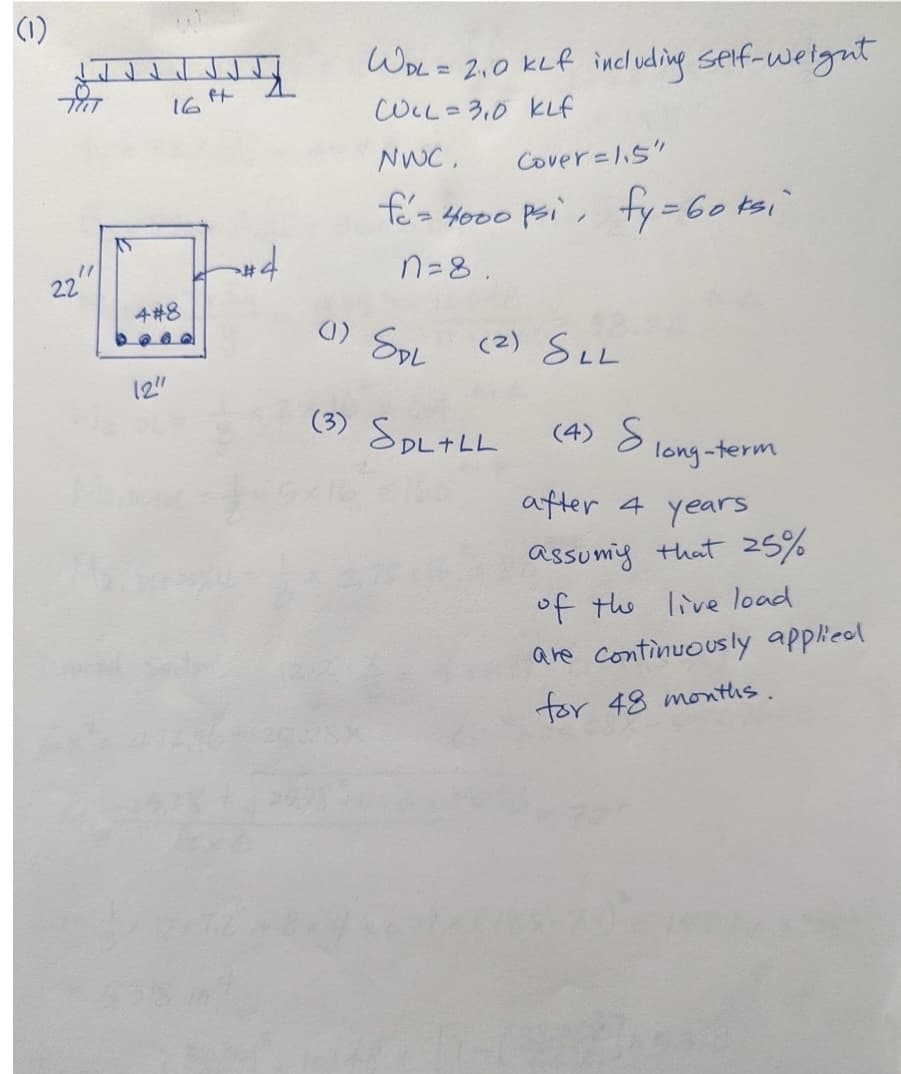 (1)
WDL = 2.0 kLf including self-weight
16 ft
WLL = 3.0 kLf
NWC. Cover = 1.5"
fc' = 4000 psi, fy = 60 ksi
22"
#4
n = 8.
4#8
12"
(1) δDL (2) δLL
(3) δDL+LL (4) δ long-term
after 4 years
assumig that 25%
of the live load
are continuously applied
for 48 months.